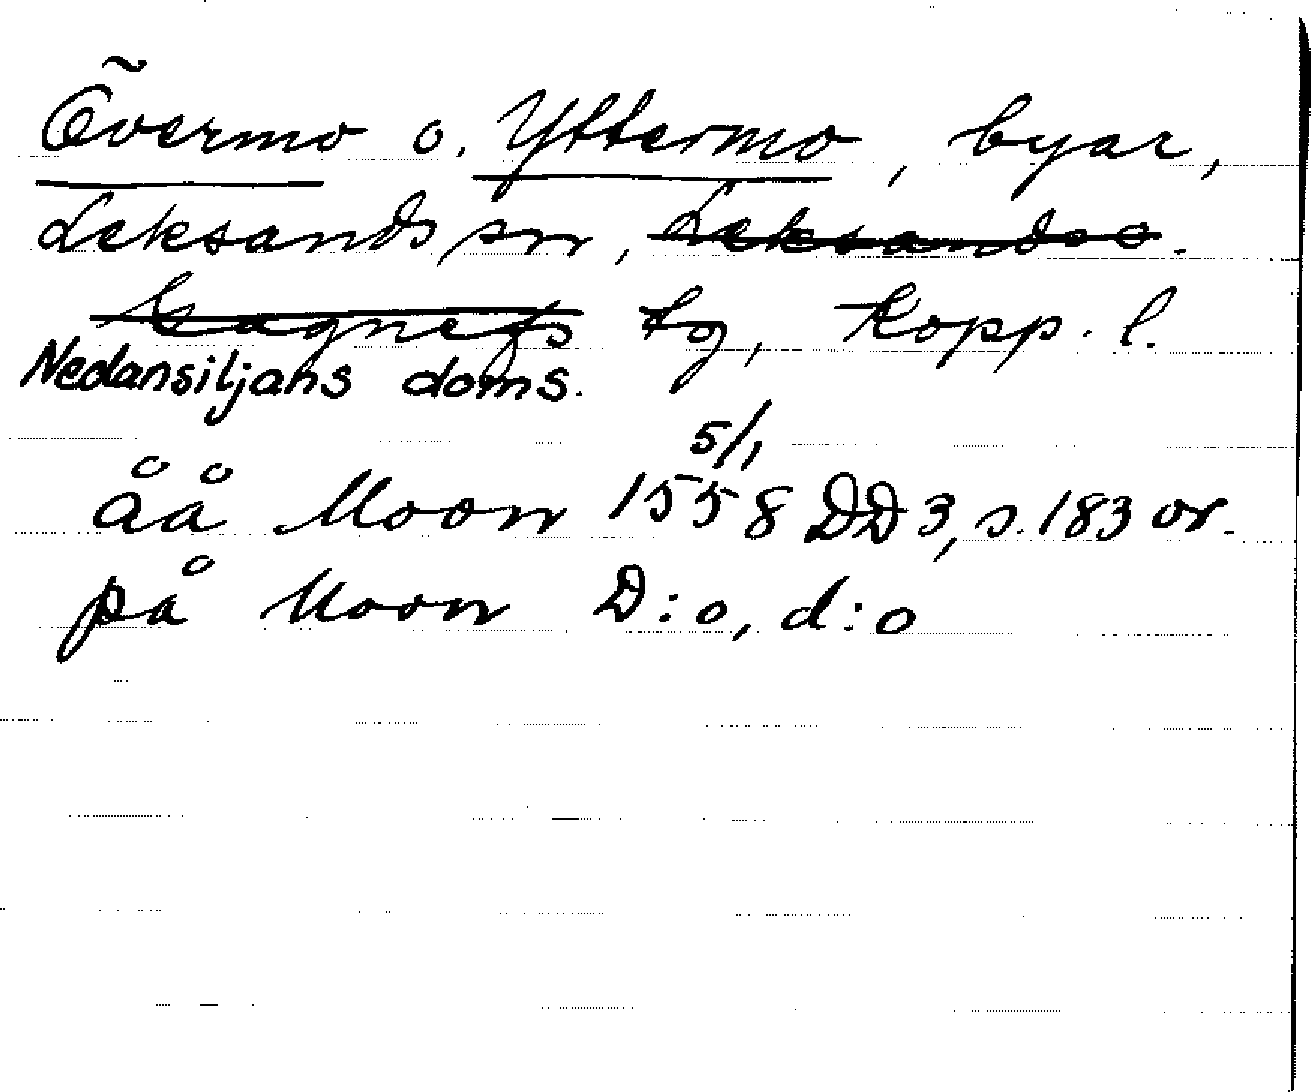 Övermo o. Yttermo, byar,
Leksands sn, Leksands o.
Gagnefs tg, Kopp. l.
Nedansiljans doms.
5/1
åå Moon 1558 DD 3, s. 183 or.
på Moon D:o, d:o